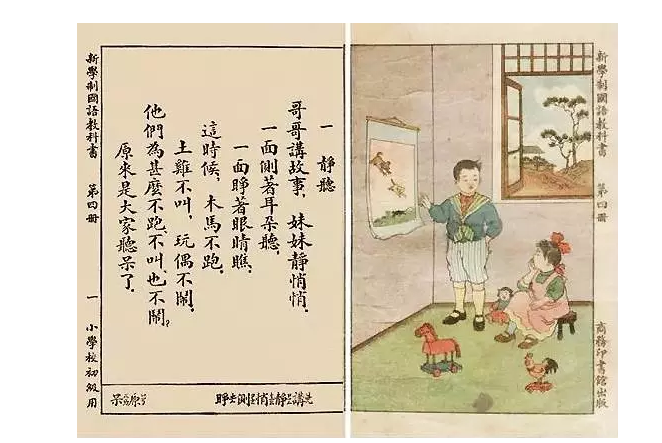 新學制國語教科書 第四冊 商務印書館出版
一 靜聽
哥哥講故事，妹妹靜悄悄．
一面側著耳朵聽，
一面睜著眼睛瞧．
這時候，木馬不跑．
土雞不叫，玩偶不鬧．
他們為甚麼不跑不叫，也不鬧？
原來是大家聽呆了．
講 靜 悄 側 睜 原 呆
新學制國語教科書 第四冊 一 小學校初級用